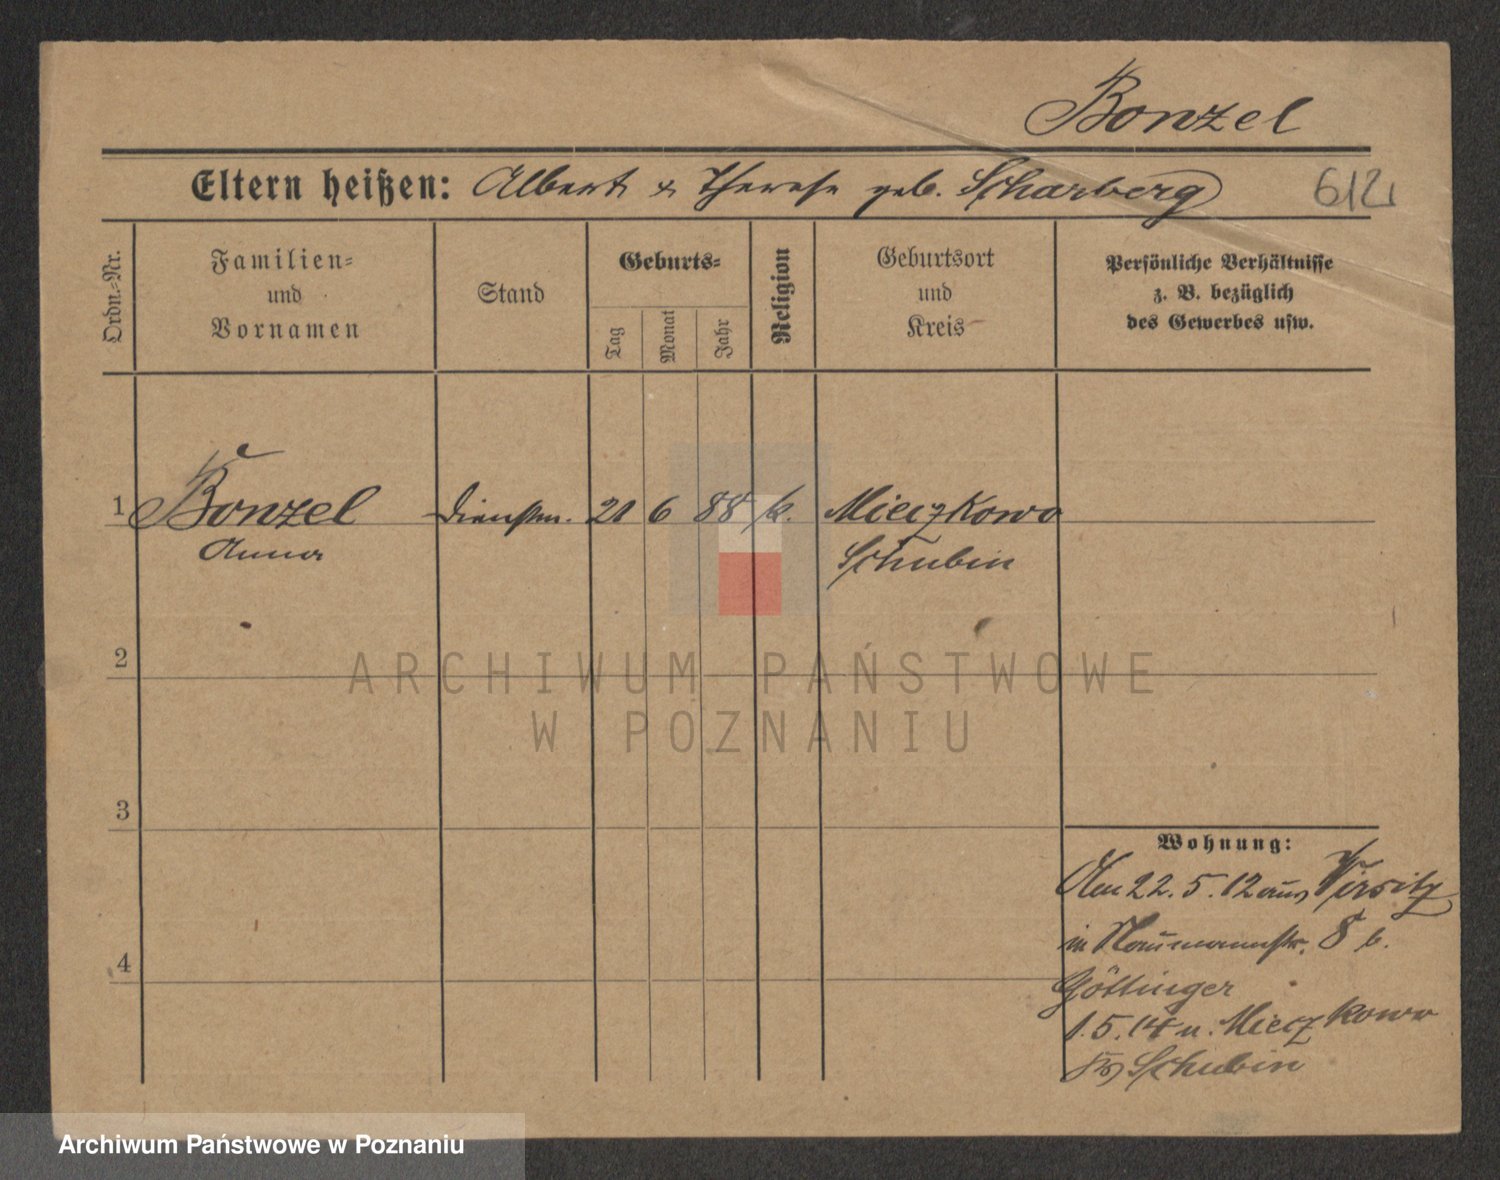 Bonzel
Eltern heißen: Albert & Therese geb. Scharberg
612
Ordn.-Nr.
Familien=
und
Vornamen
Stand
Geburts=
Tag
Monat
Jahr
Religion
Geburtsort
und
Kreis
Persönliche Verhältnisse
z. B. bezüglich
des Gewerbes usw.
1 Bonzel Dienstm. 21 6 88 k. Mieczkowo
Anna Schubin
2
3
4
Wohnung:
Am 22.5.12 aus Wirsitz
in Naumannstr. 8 b.
Göttinger
1.5.14 n. Mieczkowo
Schubin
ARCHIWUM PAŃSTWOWE
W POZNANIU
Archiwum Państwowe w Poznaniu